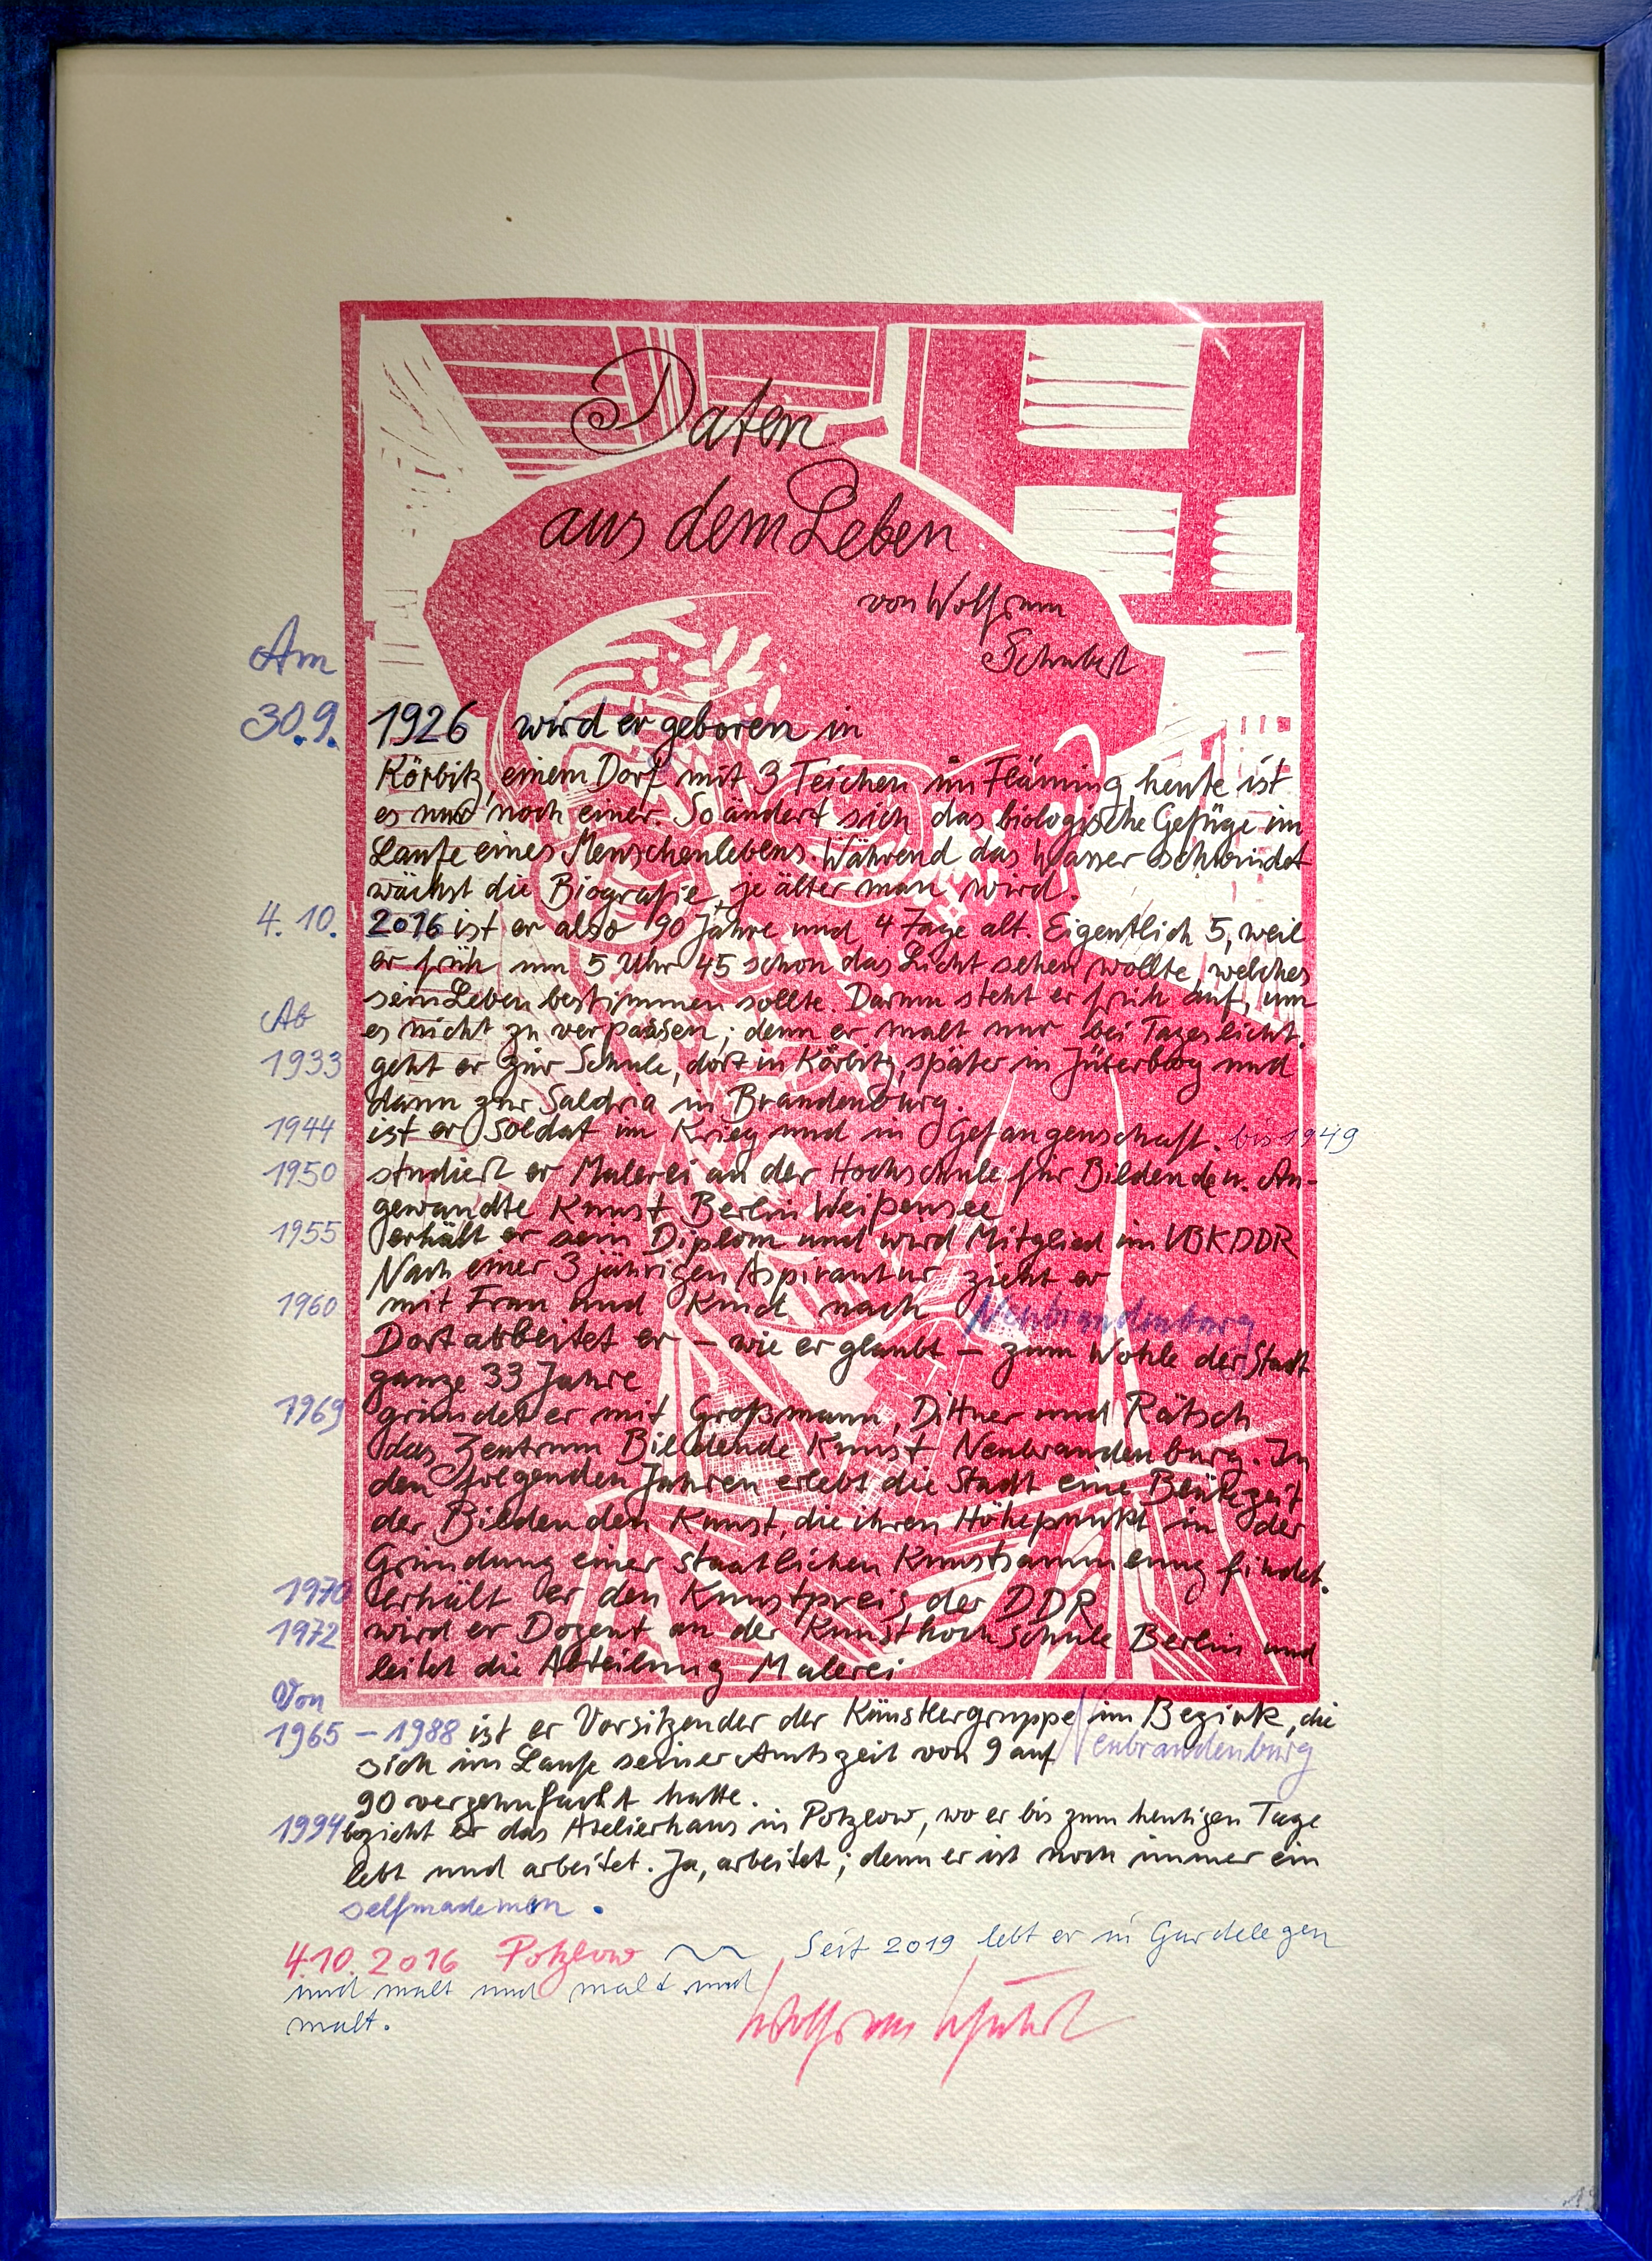 Daten
aus dem Leben
von Wolfram
Schubert
Am
30.9. 1926 wird er geboren in
Körbitz, einem Dorf mit 3 Teichen im Fläming, heute ist
es nur noch einer. So ändert sich das biologische Gefüge im
Laufe eines Menschenlebens. Während das Wasser schwindet
wächst die Biografie, je älter man wird.
4.10. 2016 ist er also 90 Jahre und 4 Tage alt. Eigentlich 5, weil
er früh um 5 Uhr 45 schon das Licht sehen wollte, welches
sein Leben bestimmen sollte. Darum steht er früh auf, um
Ab es nicht zu verpassen; denn er malt nur bei Tageslicht.
1933 geht er zur Schule, dort in Körbitz, später in Jüterbog und
dann zur Saldria in Brandenburg.
1944 ist er Soldat im Krieg und in Gefangenschaft. bis 1949
1950 studiert er Malerei an der Hochschule für Bildende u. An-
gewandte Kunst Berlin Weißensee
1955 erhält er sein Diplom und wird Mitglied im VBKDDR
Nach einer 3 jährigen Aspirantur zieht er
1960 mit Frau und Kind nach Neubrandenburg
Dort arbeitet er – wie er glaubt – zum Wohle der Stadt
ganze 33 Jahre
1969 gründet er mit Großmann, Dittner und Rätsch
das Zentrum Bildende Kunst Neubrandenburg. In
den folgenden Jahren erlebt die Stadt eine Blütezeit
der Bildenden Kunst, die ihren Höhepunkt in der
Gründung einer staatlichen Kunstsammlung findet.
1970 erhält er den Kunstpreis der DDR
1972 wird er Dozent an der Kunsthochschule Berlin und
leitet die Abteilung Malerei
Von
1965 – 1988 ist er Vorsitzender der Künstlergruppe im Bezirk, die
Neubrandenburg
sich im Laufe seiner Amtszeit von 9 auf
90 verzehnfacht hatte.
1994 bezieht er das Atelierhaus in Potzlow, wo er bis zum heutigen Tage
lebt und arbeitet. Ja, arbeitet; denn er ist noch immer ein
selfmademan.
4.10.2016 Potzlow Seit 2019 lebt er in Gardelegen
und malt und malt und
malt.
Wolfram Schubert